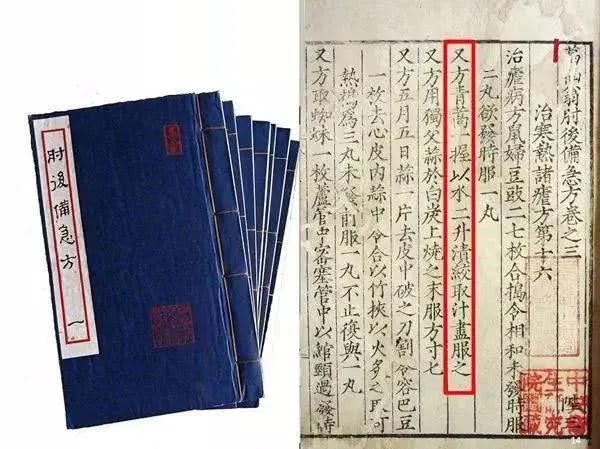 肘後備急方
一
葛仙翁肘後備急方卷之三
治寒熱諸瘧方第十六
治瘧病方鼠婦豆豉二七枚合搗令相和未發時服
二丸欲發時服一丸
又方青蒿一握以水二升漬絞取汁盡服之
又方用獨父蒜於白炭上燒之末服方寸七
又方五月五日蒜一片去皮中破之刀割令容巴豆
一枚去心皮內蒜中令合以竹挾以火炙之取可
熱搗為三丸未發前服一丸不止復與一丸
又方取蜘蛛一枚蘆管中密塞管中以綰頸過發時
14